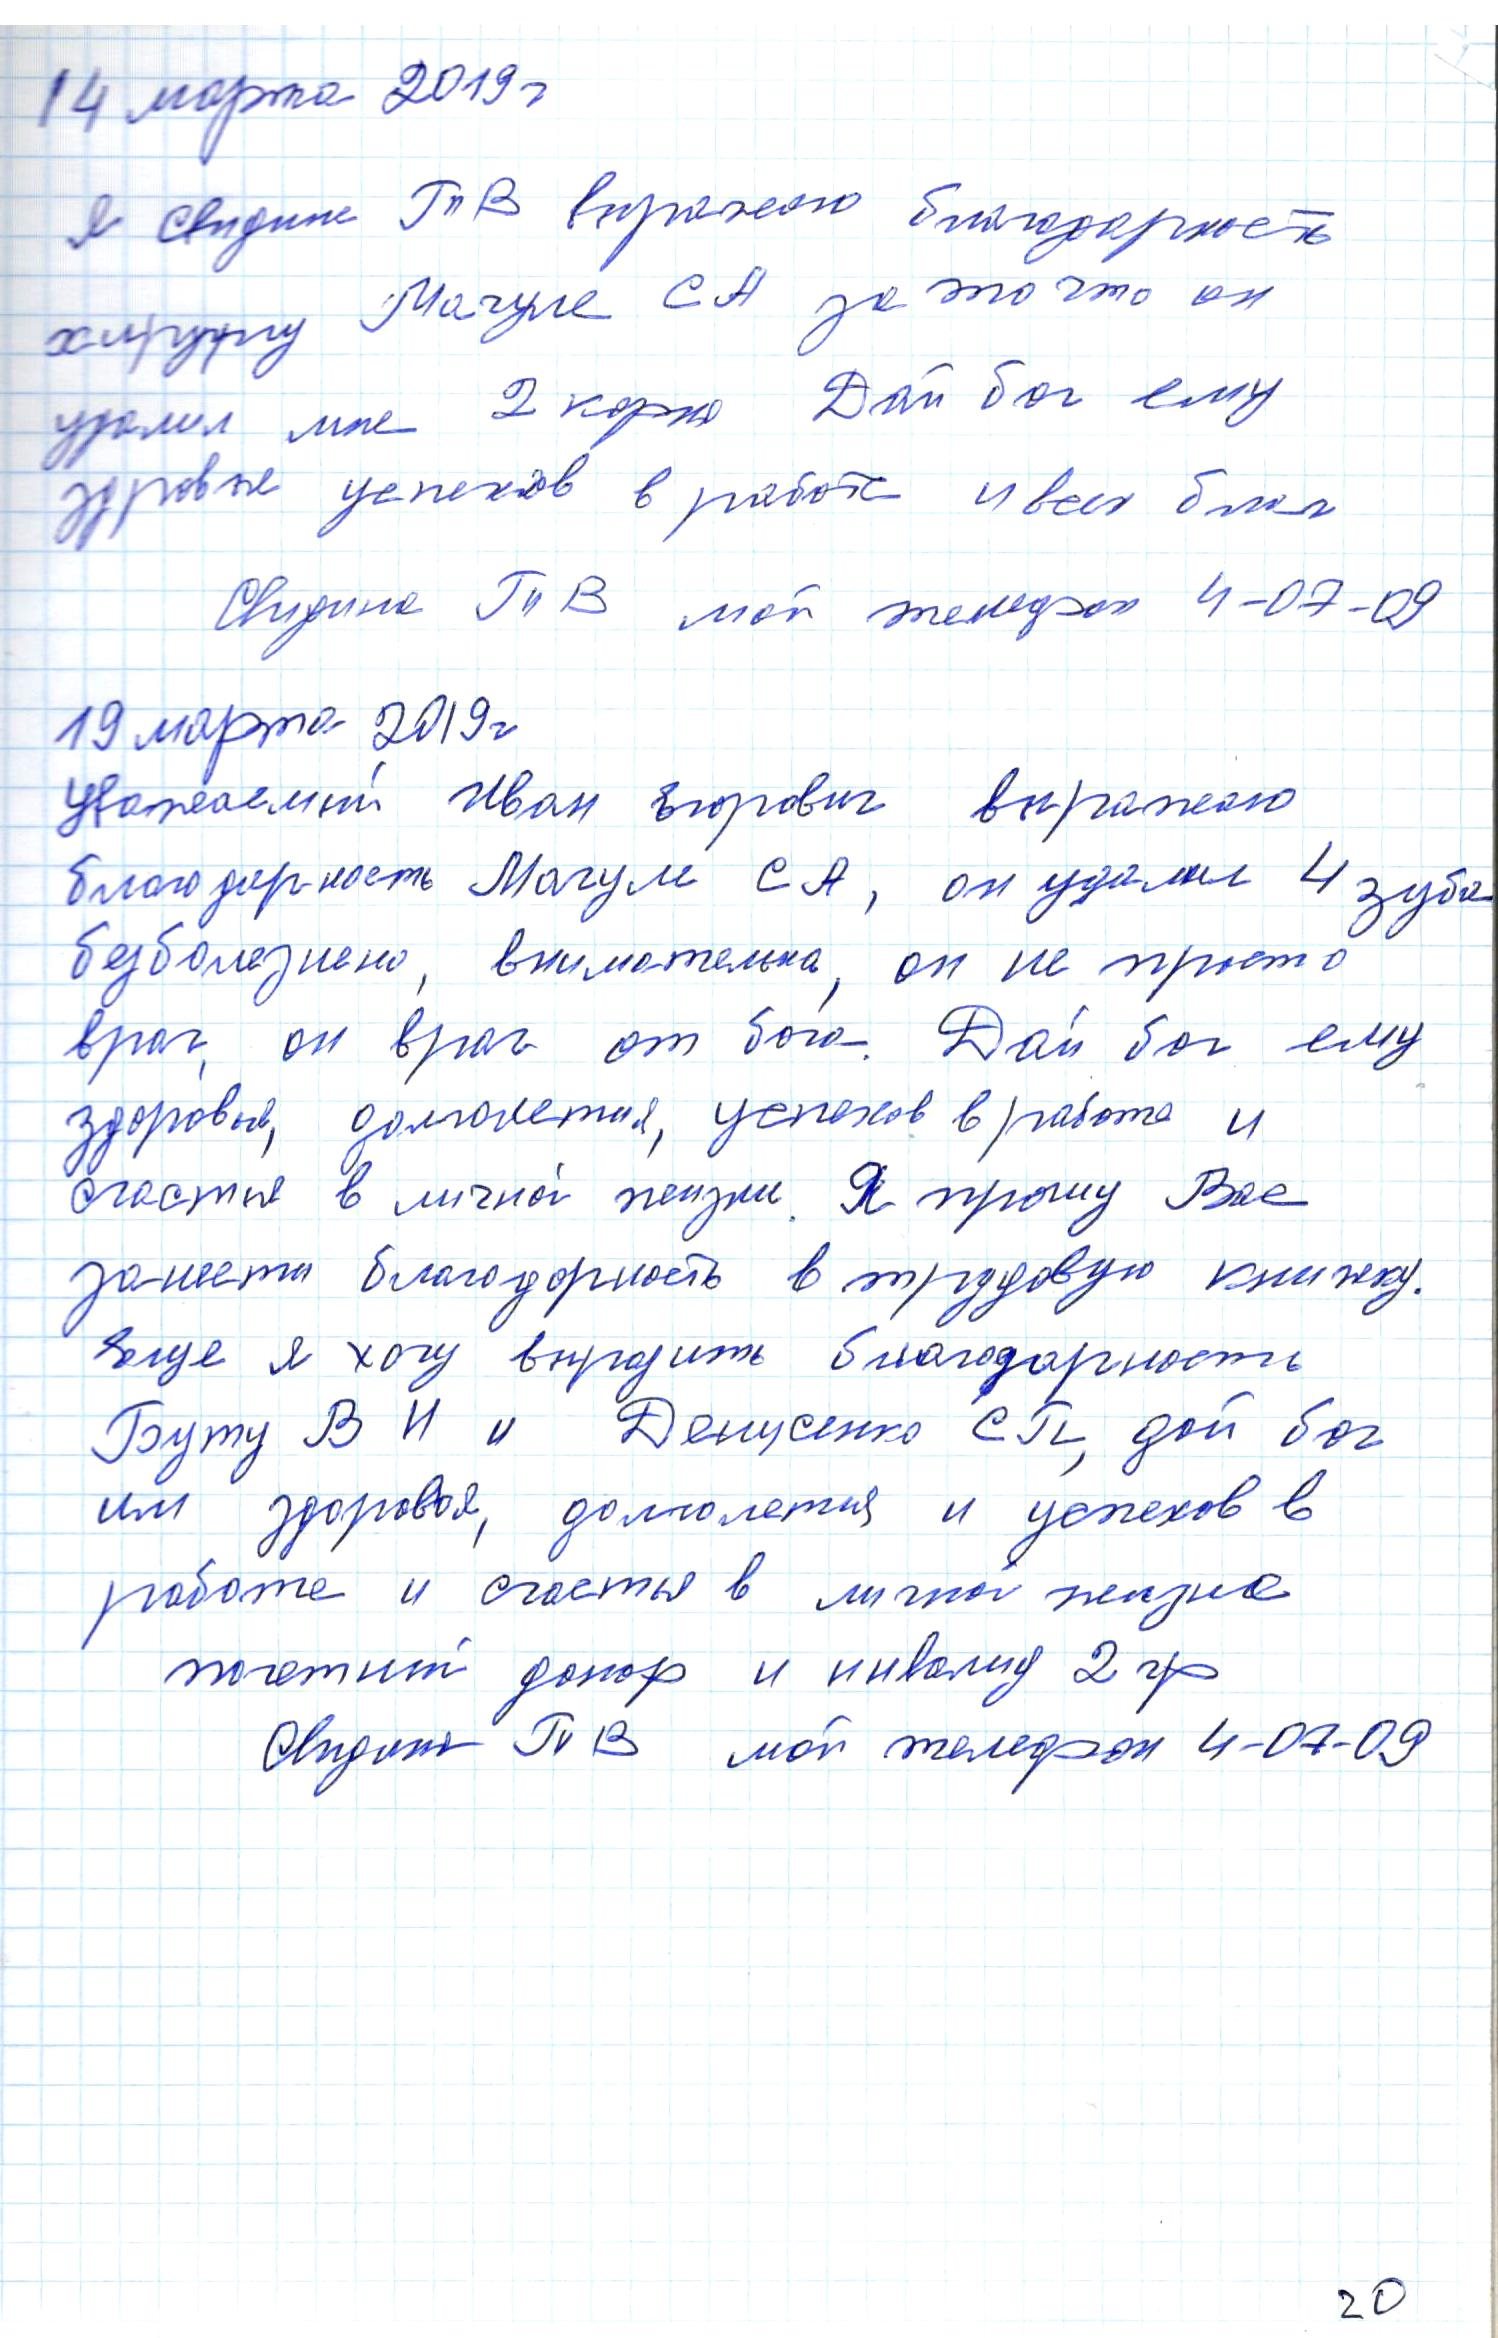 14 марта 2019г
Я Свидина Т В выражаю благодарность
хирургу Магуле С А за то что он
удалил мне 2 корня Дай бог ему
здровья успехов в работе и всех благ
Свидина Т В мой телефон 4-07-09
19 марта 2019г
Уважаемый Иван Егорович выражаю
благодарность Магуле С А, он удалил 4 зуба
безболезнено, внимательна, он не просто
врач, он врач от бога. Дай бог ему
здоровья, долголетия, успехов в работе и
счастья в личной жизни. Я прошу Вас
занести благодарность в трудовую книжку.
Еще я хочу выразить благодарность
Буту В И и Денусенко С П, дай бог
им здоровья, долголетия и успехов в
работе и счастья в личной жизне
почетный донор и инвалид 2 гр
Свидина Т В мой телефон 4-07-09
20